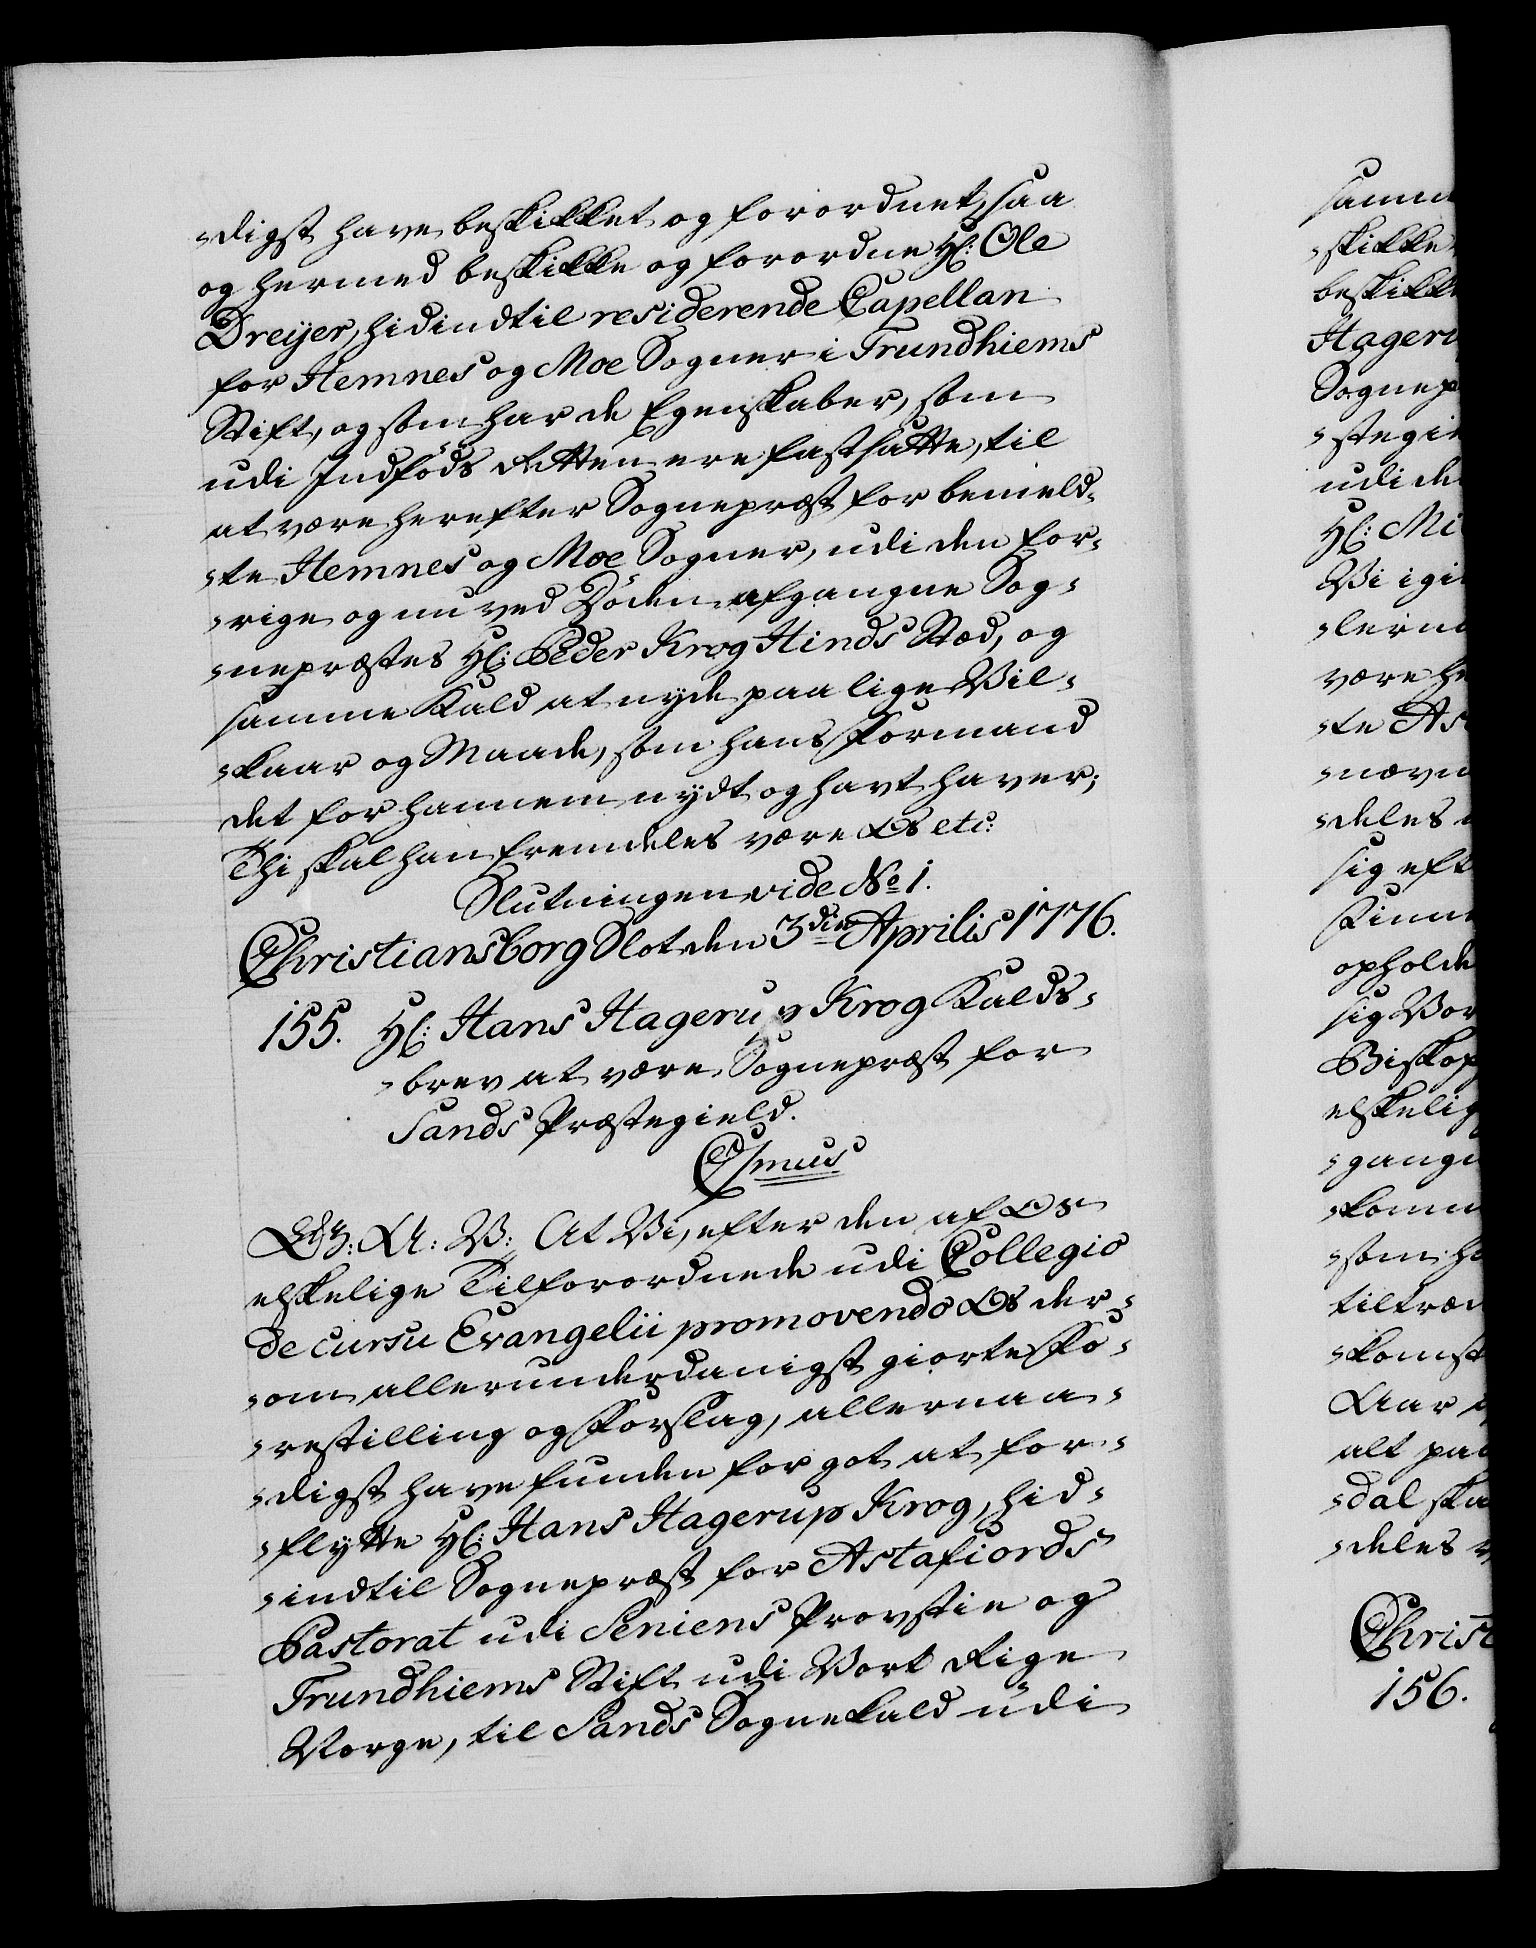 -digst have beskikket og forordnet, saa
og hermed beskikke og forordne Hr: Ole
Dreyer, hidindtil residerende Capellan
for Hemnes og Moe Sogner i Trundhiems
Stift, og som har de Egenskaber, som
udi Indføds Retten ere fastsatte, til
at være herefter Sognepræst for bemeld-
-te Hemnes og Moe Sogner, udi den for-
-rige og nu ved Döden afgangne Sog-
-nepræstes Hr: Peder Krog Hinds Stæd, og
samme Kald at nyde paa lige Vil-
-kaar og Maade, som hans Formand
det for hannem nydt og havt haver;
Thi skal han fremdeles være Os etc:
Slutningen vide No 1.
Christiansborg Slot den 3die Aprilis 1776.
155. Hr: Hans Hagerup Krog Kalds-
-brev at være Sognepræst for
Sands Præstegield.
C7mus
G: A: V: At Vi, efter den af Os
elskelige Tilforordnede udi Collegio
de cursu Evangelii promovendo Os der-
-om allerunderdanigst giorte Fo-
-restilling og Forslag, allernaa-
-digst have funden for got at for-
-flytte Hr: Hans Hagerup Krog, hid-
-indtil Sognepræst for Astafiords
Pastorat udi Seniens Provstie og
Trundhiems Stift udi Vort Rige
Norge, til Sands Sognekald udi
skikke
beskikk
Sognep
-stegie
udi de
Hr: Mi
Vi igi
være he
-te As
-nævn
-deles
sig eft
opholde
sig Vor
Biskop
elskelig
-gange
-komm
-som ha
tiltræd
-komst
Aar
alt paa
-dal ska
-deles
Christ
156.